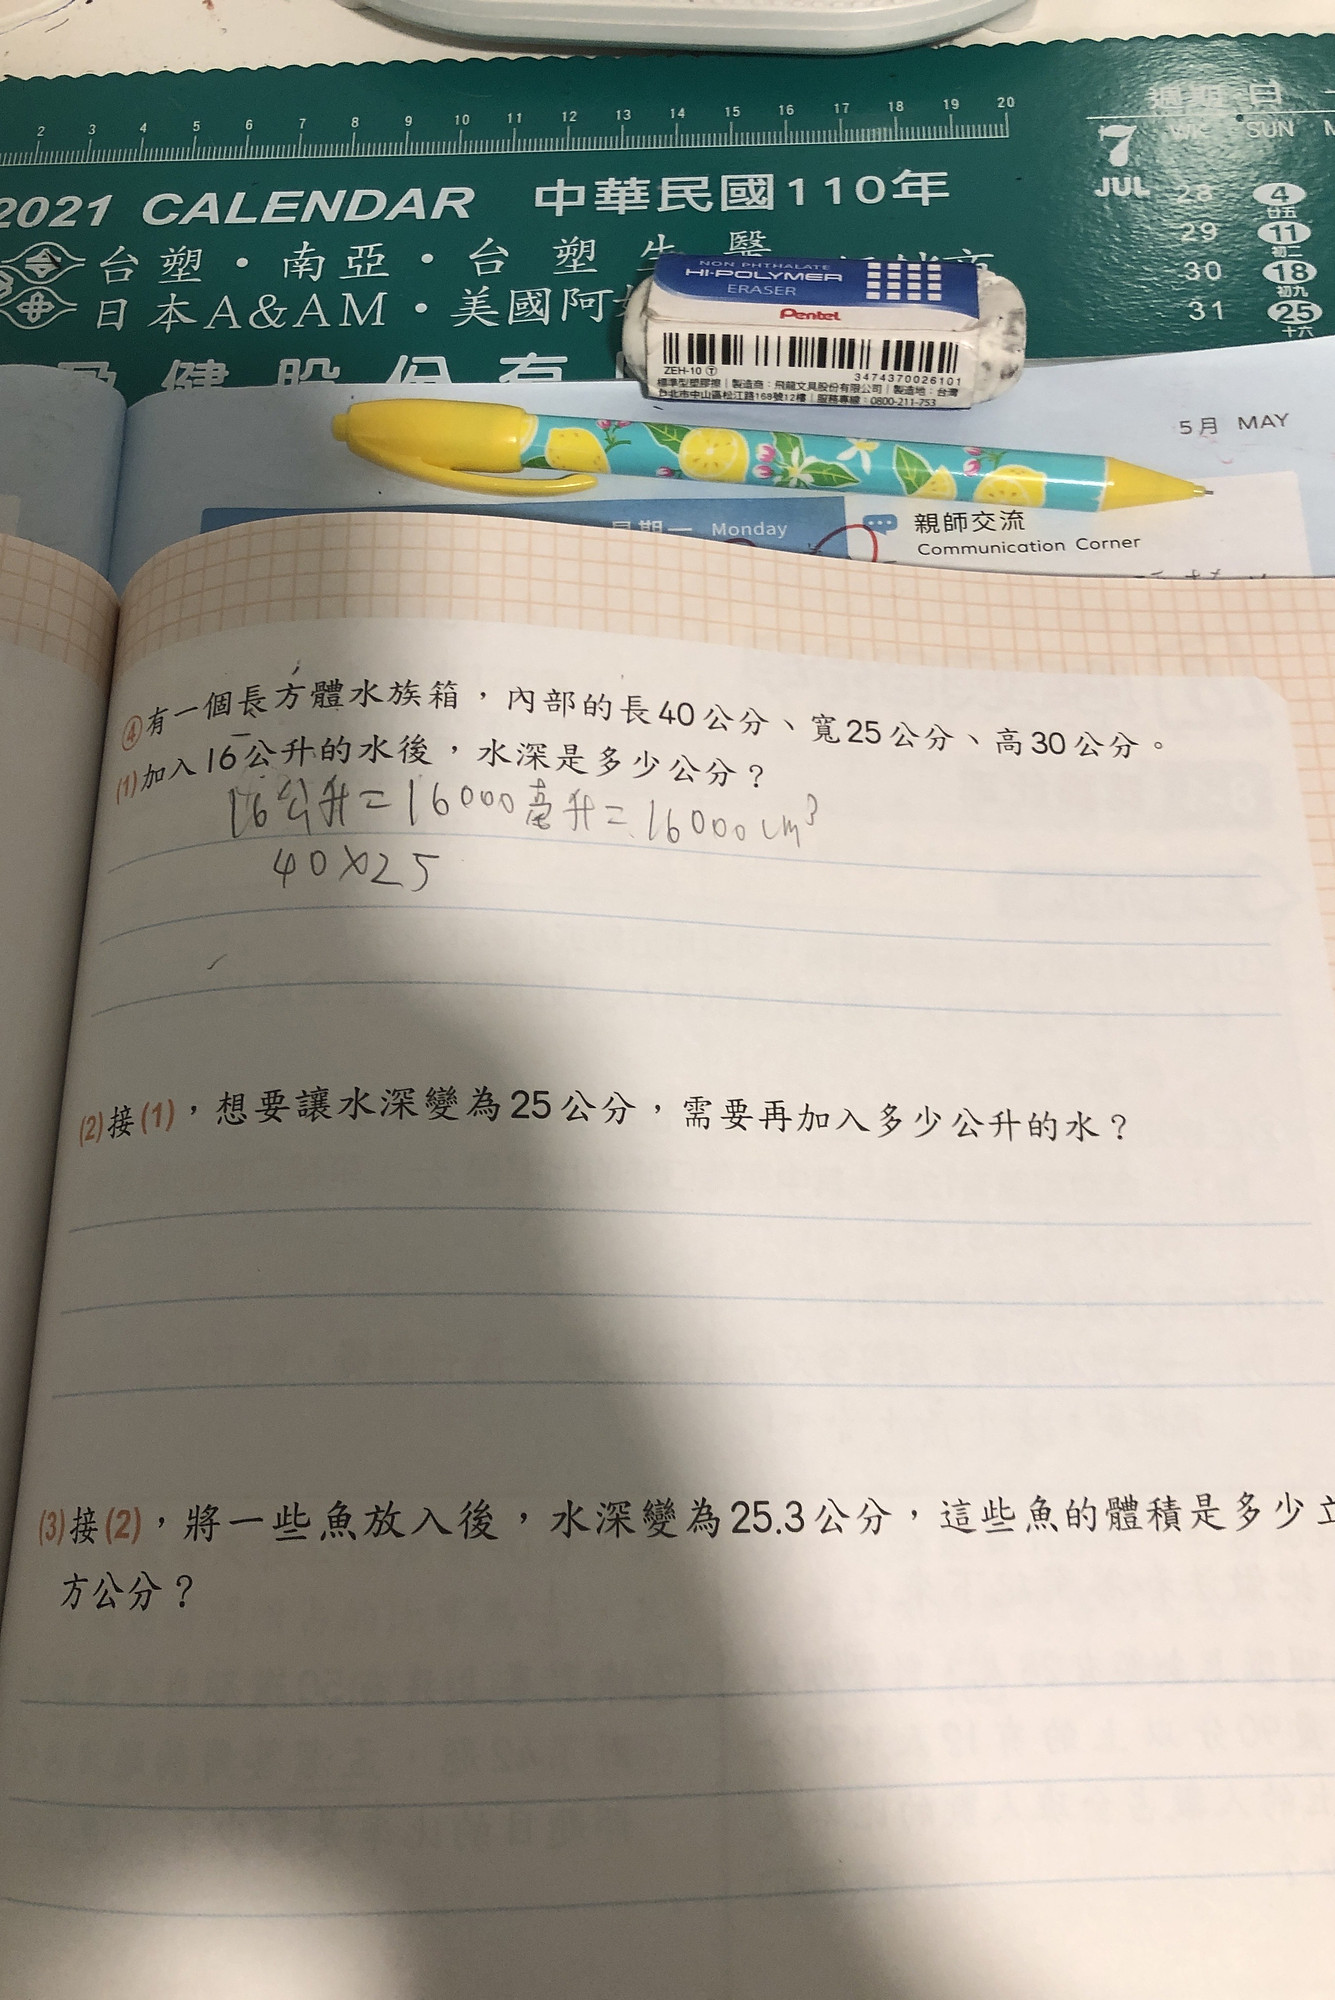 2 3 4 5 6 7 8 9 10 11 12 13 14 15 16 17 18 19 20
2021 CALENDAR 中華民國110年
台塑・南亞・台塑生醫
日本A&AM・美國阿
健股份有
週期 日
7 WK SUN
JUL 28 4
廿五
29 11
初二
30 18
初九
31 25
十六
NON PHTHALATE
HI-POLYMER
ERASER
Pentel
ZEH-10 T 3474370026101
標準型塑膠擦｜製造商：飛龍文具股份有限公司｜製造地：台灣
台北市中山區松江路168號12樓｜服務專線：0800-211-753
5月 MAY
星期一 Monday
親師交流
Communication Corner
④有一個長方體水族箱，內部的長40公分、寬25公分、高30公分。
(1)加入16公升的水後，水深是多少公分？
16公升=16000毫升=16000cm³
40×25
(2)接(1)，想要讓水深變為25公分，需要再加入多少公升的水？
(3)接(2)，將一些魚放入後，水深變為25.3公分，這些魚的體積是多少立
方公分？